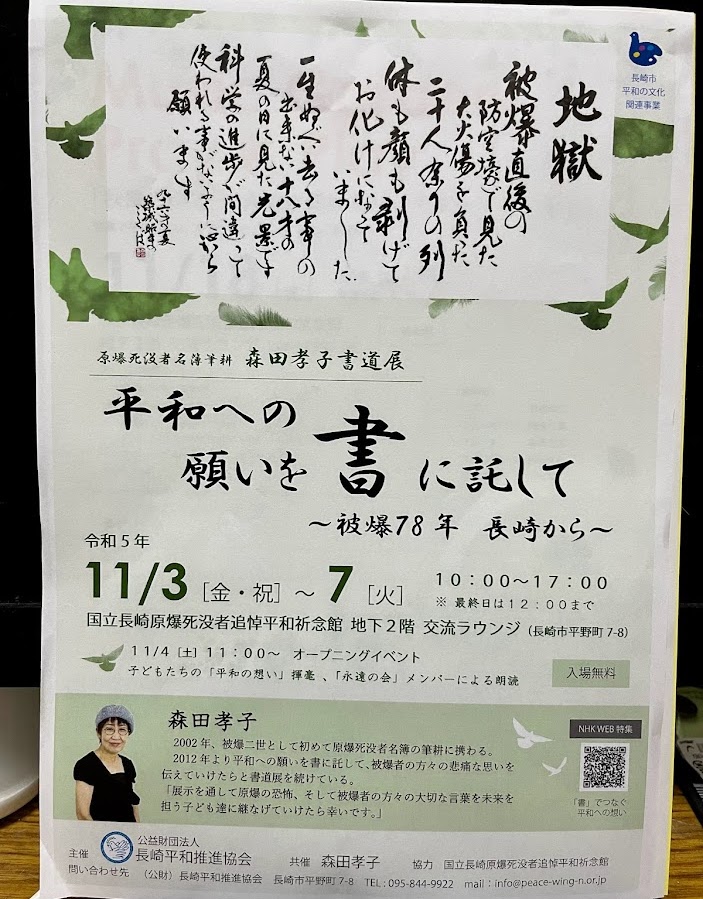 長崎市
平和の文化
関連事業
地獄
被爆直後の
防空壕で見た
大火傷を負った
二十人余りの列
体も顔も剥げて
お化けになって
いました
一生ぬぐい去る事の
出来ない十八才の
夏の日に見た光景です
科学の進歩が間違って
使われる事がないように心から
願います
原爆死没者名簿筆耕 森田孝子書道展
平和への
願いを書に託して
～被爆78年 長崎から～
令和5年
11/3［金・祝］～7［火］ 10：00～17：00
※ 最終日は12：00まで
国立長崎原爆死没者追悼平和祈念館 地下2階 交流ラウンジ（長崎市平野町7-8）
11/4［土］11：00～ オープニングイベント
子どもたちの「平和の想い」揮毫、「永遠の会」メンバーによる朗読
入場無料
森田孝子
2002年、被爆二世として初めて原爆死没者名簿の筆耕に携わる。
2012年より平和への願いを書に託して、被爆者の方々の悲痛な思いを
伝えていけたらと書道展を続けている。
「展示を通して原爆の恐怖、そして被爆者の方々の大切な言葉を未来を
担う子ども達に継なげていけたら幸いです。」
NHK WEB 特集
「書」でつなぐ
平和への想い
主催 公益財団法人
長崎平和推進協会 共催 森田孝子 協力 国立長崎原爆死没者追悼平和祈念館
問い合わせ先 （公財）長崎平和推進協会 長崎市平野町7-8 TEL：095-844-9922 mail：info@peace-wing-n.or.jp